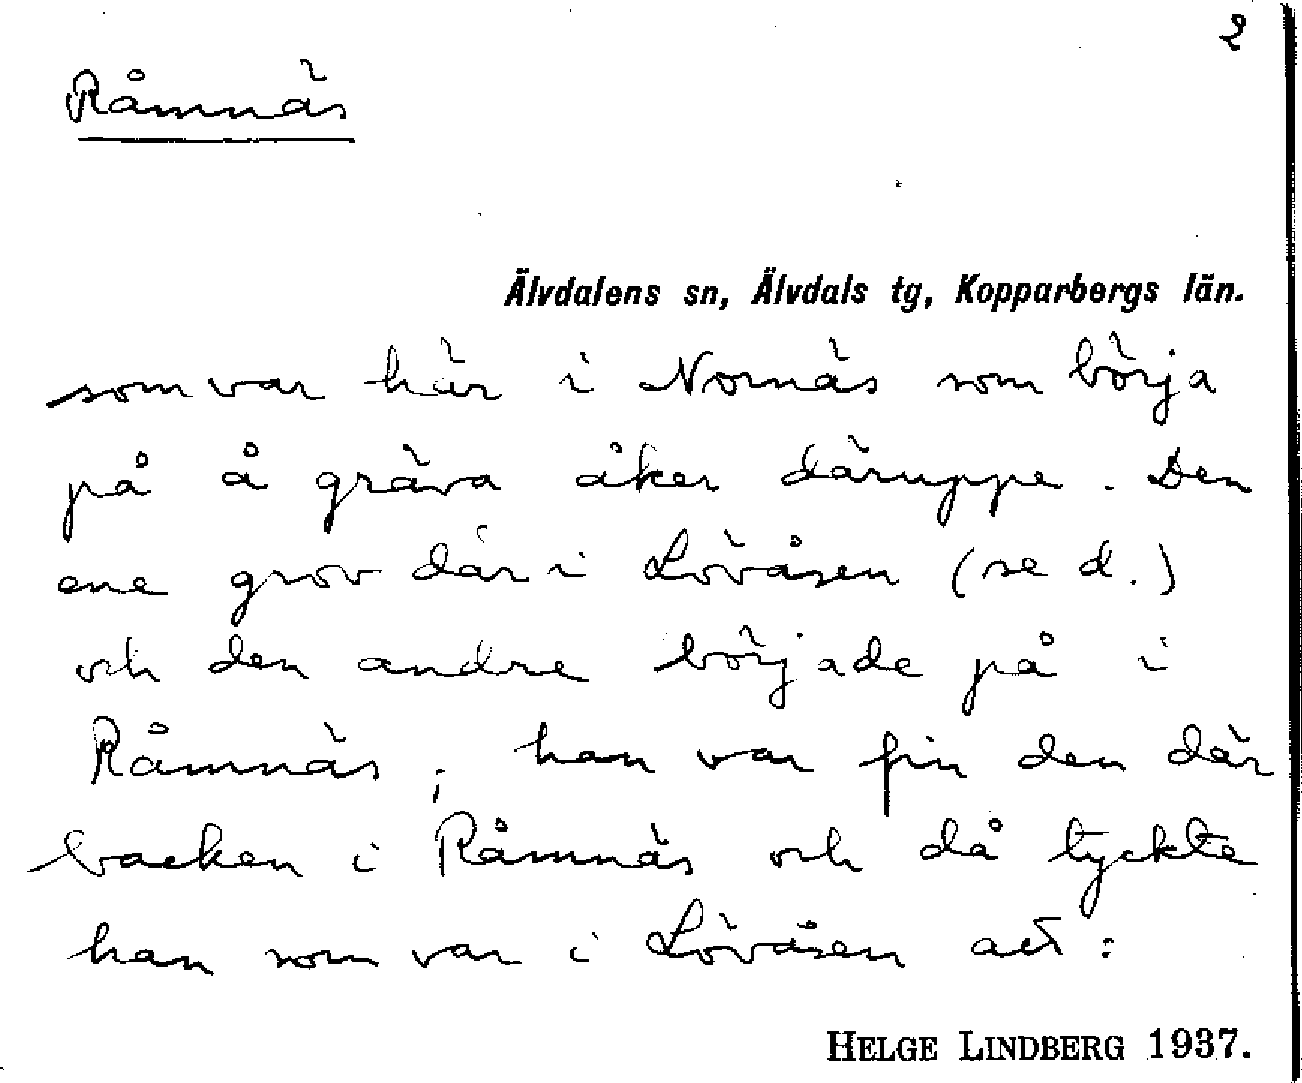 2
Råmnäs
Älvdalens sn, Älvdals tg, Kopparbergs län.
som var här i Nornäs som börja
på å gräva åker däruppe. Den
ene grov där i Lövåsen (se d.)
och den andre började på i
Råmnäs; han var fin den där
backen i Råmnäs och då tyckte
han som var i Lövåsen att:
HELGE LINDBERG 1937.